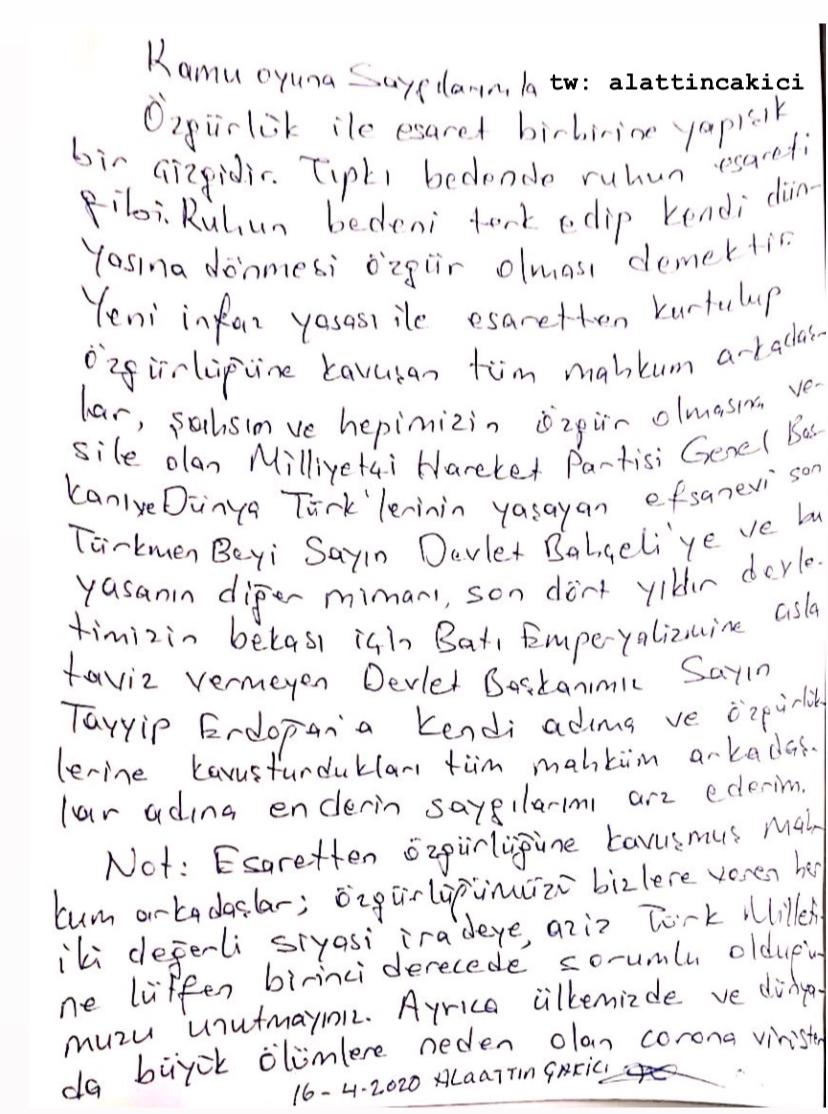 Kamu oyuna Saygılarımla tw: alattincakici
Özgürlük ile esaret birbirine yapışık
bir çizgidir. Tıpkı bedende ruhun esareti
gibi. Ruhun bedeni terk edip kendi dün-
yasına dönmesi özgür olması demektir.
Yeni infaz yasası ile esaretten kurtulup
özgürlüğüne kavuşan tüm mahkum arkadaş-
lar, şahsım ve hepimizin özgür olmasına ve-
sile olan Milliyetçi Hareket Partisi Genel Baş-
kanı ve Dünya Türk'lerinin yaşayan efsanevi son
Türkmen Beyi Sayın Devlet Bahçeli'ye ve bu
yasanın diğer mimarı, son dört yıldır devle-
timizin bekası için Batı Emperyalizmine asla
taviz vermeyen Devlet Başkanımız Sayın
Tayyip Erdoğan'a kendi adıma ve özgürlük-
lerine kavuşturdukları tüm mahküm arkadaş-
lar adına en derin saygılarımı arz ederim.
Not: Esaretten özgürlüğüne kavuşmuş mah-
kum arkadaşlar; özgürlüğümüzü bizlere veren her
iki değerli siyasi iradeye, aziz Türk Milleti-
ne lütfen birinci derecede sorumlu olduğu-
muzu unutmayınız. Ayrıca ülkemizde ve dünya-
da büyük ölümlere neden olan corona virüsten
16-4-2020 ALAATTİN ÇAKICI